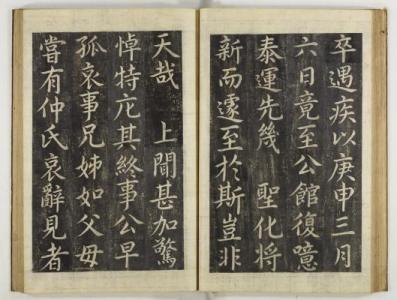 卒遇疾以庚申三月
六日竟至公館復噫
泰運先幾　聖化將
新而遽至於斯豈非
天哉　上聞甚加驚
悼特庀其終事公早
孤哀事兄姊如父母
嘗有仲氏哀辭見者